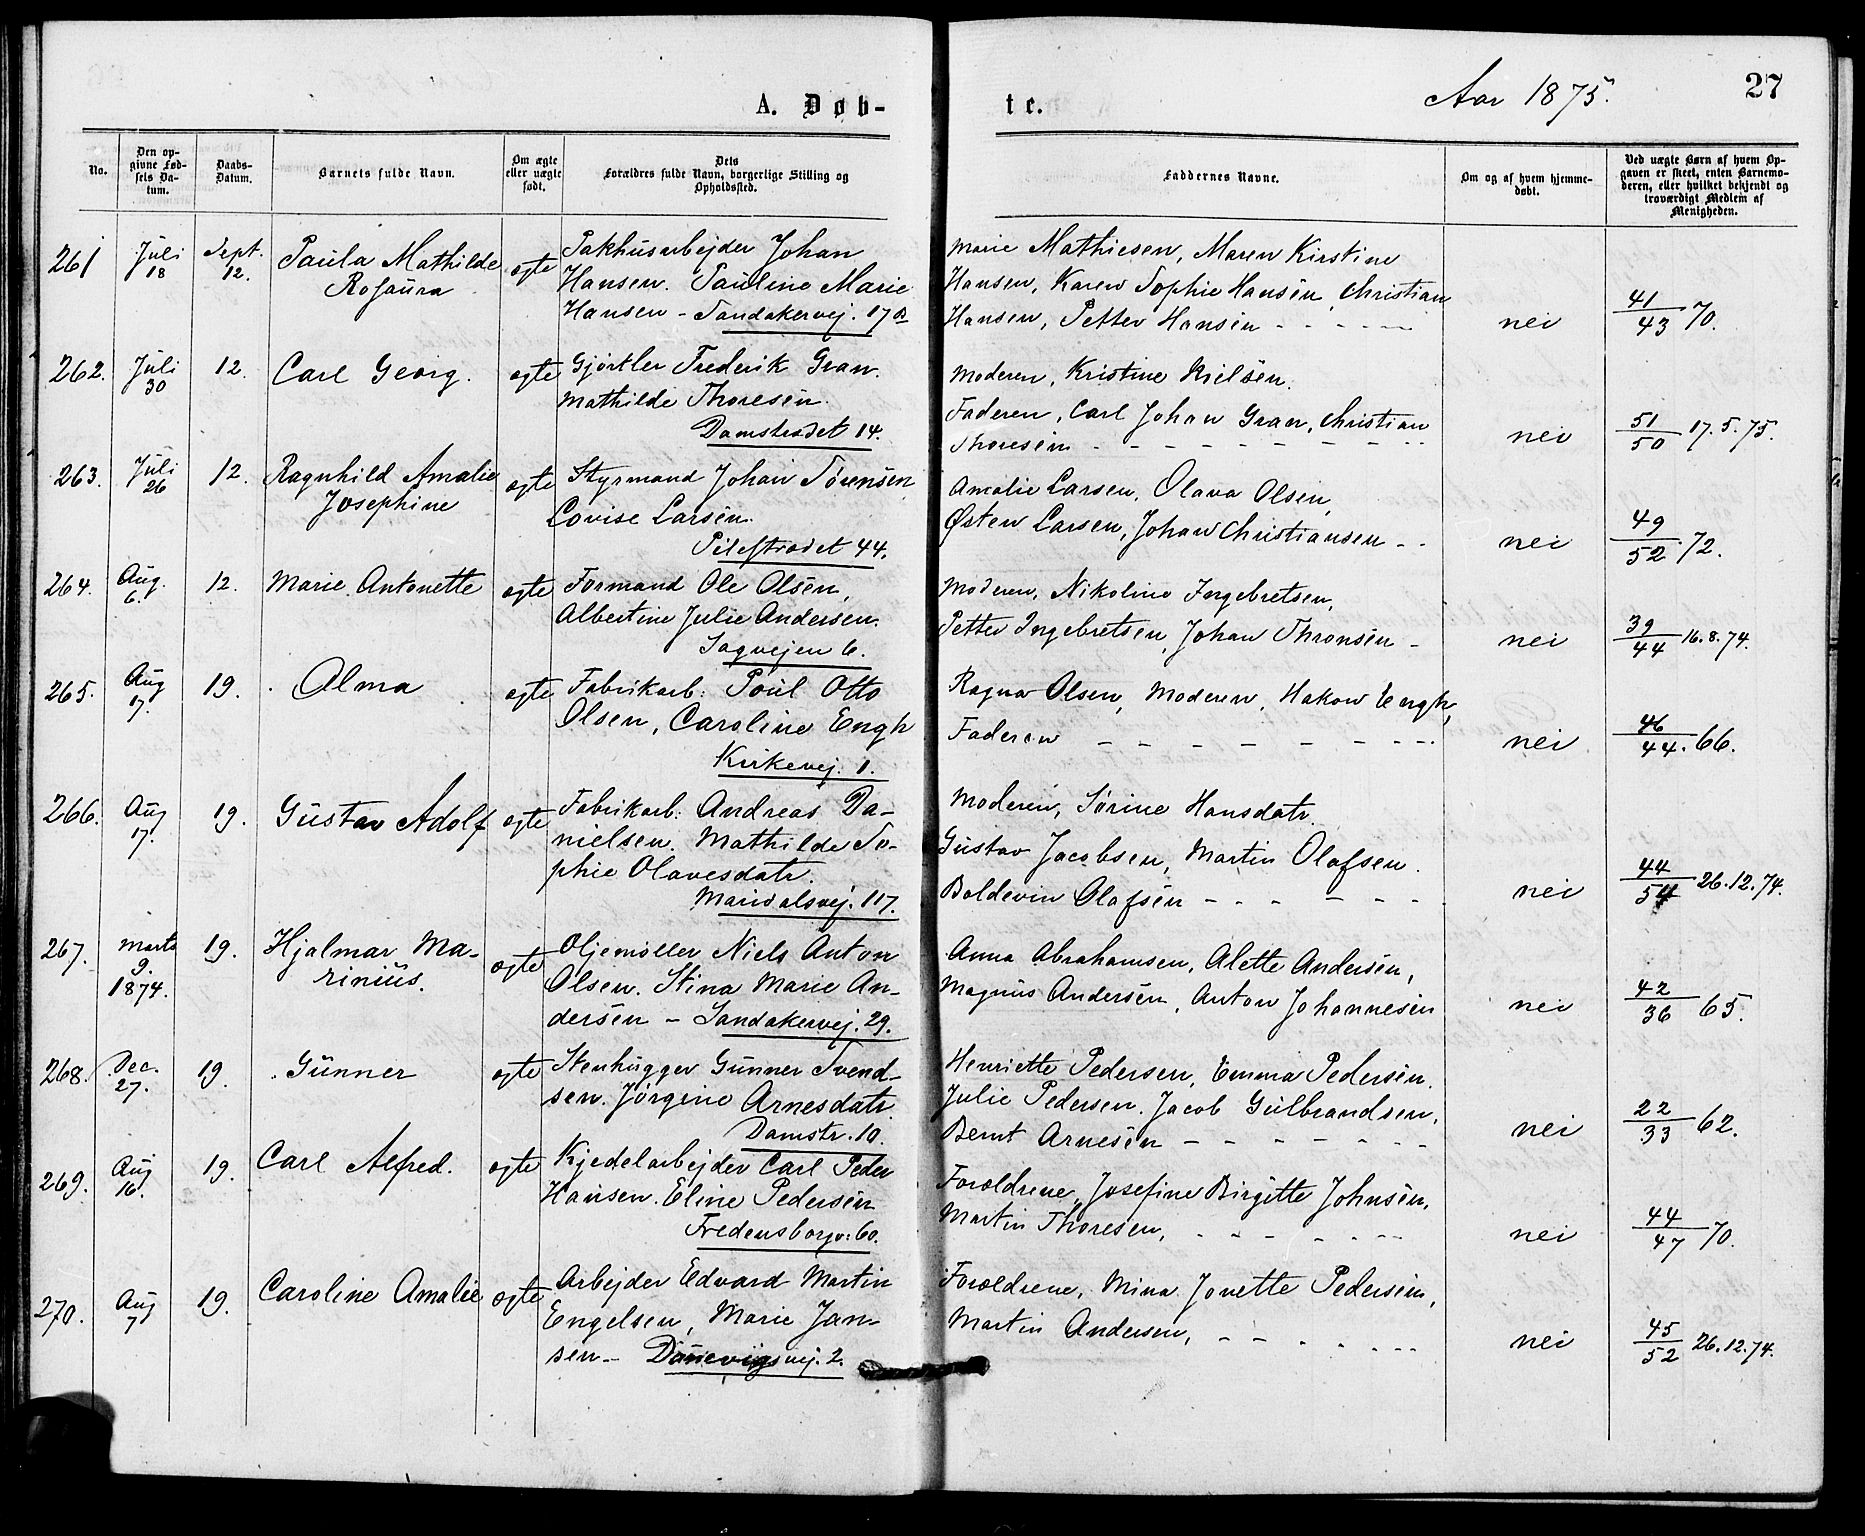 A. Døb-
te.
Aar 1875.
27
No.
Den op-
givne Fød-
sels Da-
tum.
Daabs-
Datum.
Barnets fulde Navn.
Om ægte
eller uægte
født.
Dets
Forældres fulde Navn, borgerlige Stilling og
Opholdssted.
Faddernes Navne.
Om og af hvem hjemme-
døbt.
Ved uægte Børn af hvem Op-
gaven er skeet, enten Barnemo-
deren, eller hvilket bekjendt og
troværdigt Medlem af
Menigheden.
261 Juli 18 Sept. 12. Paula Mathilde Rosaura ægte
Pakhusarbejder Johan
Hansen. Pauline Marie
Hansen - Sandakervej. 17 B
Marie Mathiesen, Maren Kirstine
Hansen, Karen Sophie Hansen, Christian
Hansen, Petter Hansen - - - - - nei 41/43 70.
262. Juli 30 12. Carl Georg. ægte
Gjørtler Frederik Gran.
Mathilde Thoresen.
Damstrædet 14.
Moderen, Kristine Nielsen.
Faderen, Carl Johan Gran, Christian
Thoresen - - - - - - - - - nei 51/50 17.5.75.
263. Juli 26 12. Ragnhild Amalie Josephine ægte
Styrmand Johan Sørensen
Lovise Larsen.
Pilestrædet 44.
Amalie Larsen, Olava Olsen,
Østen Larsen, Johan Christiansen - - nei 49/52 72.
264. Aug. 6. 12. Marie Antonette ægte
Formand Ole Olsen,
Albertine Julie Andersen.
Sagvejen 6.
Moderen, Nikoline Ingebretsen,
Petter Ingebretsen, Johan Thronsen - nei 39/44 16.8.74.
265. Aug 17. 19. Alma ægte
Fabrikarb: Poul Otto
Olsen, Caroline Engh
Kirkevej. 1.
Ragna Olsen, Moderen, Hakon Engh,
Faderen - - - - - - - - nei 46/44. 66.
266. Aug 17. 19. Gustav Adolf ægte
Fabrikarb: Andreas Da-
nielsen. Mathilde So-
phie Olavesdatr.
Maridalsvej. 117.
Moderen, Sørine Hansdatr.
Gustav Jacobsen, Martin Olafsen.
Boldevin Olafsen - - - - - - nei 44/54 26.12.74.
267. Marts 9. 1874. 19. Hjalmar Ma-
rinius. ægte
Oljemøller Niels Anton
Olsen. Stina Marie An-
dersen - Sandakervej. 29.
Anna Abrahamsen, Alette Andersen,
Magnus Andersen, Anton Johannesen nei 42/36 65.
268. Dec. 27. 19. Gunner ægte
Stenhugger Gunner Svend-
sen. Jørgine Arnesdatr
Damstr. 10.
Henriette Pedersen, Emma Pedersen.
Julie Pedersen. Jacob Gulbrandsen,
Bernt Arnesen - - - - - - - nei 22/33 62.
269. Aug 16. 19. Carl Alfred. ægte
Kjedelarbejder Carl Peder
Hansen. Eline Pedersen
Fredensborgv: 60.
Forældrene, Josefine Birgitte Johnsen,
Martin Thoresen, - - - - - - nei 44/47 70.
270. Aug 7 19. Caroline Amalie ægte
Arbejder Edvard Martin
Engelsen, Marie Jan-
sen - vej. 2.
Forældrene, Mina Jonette Pedersen,
Martin Andersen, - - - - - - nei 45/52 26.12.74.